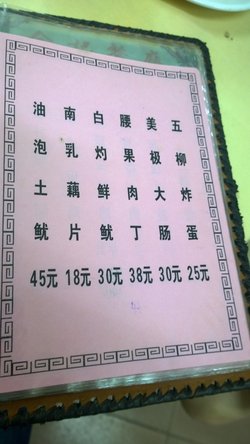 五柳炸蛋 25元
美极大肠 30元
腰果肉丁 38元
白灼鲜鱿 30元
南乳藕片 18元
油泡土鱿 45元